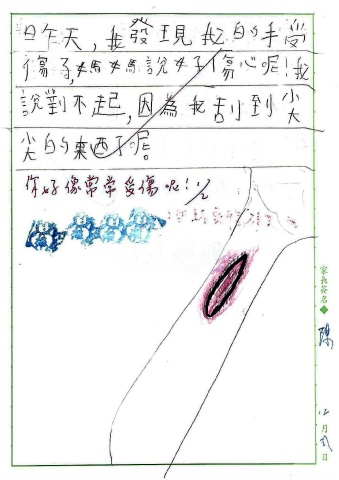 日昨天，我發現我的手受
傷了，媽媽說好傷心呢！我
說對不起，因為我刮到尖
尖的東西了呢。
你好像常常受傷呢！
家長簽名
陳
月
日